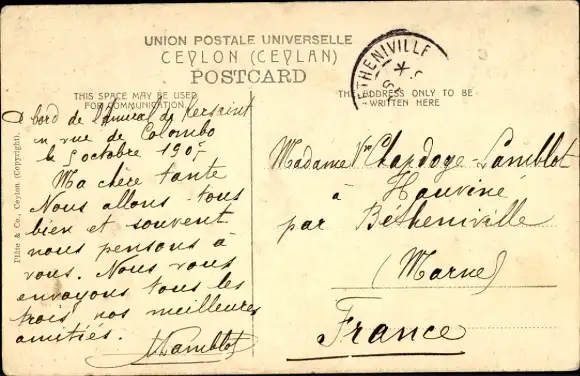 UNION POSTALE UNIVERSELLE
CEYLON (CEYLAN)
POSTCARD
THIS SPACE MAY BE USED
FOR COMMUNICATION.
THE ADDRESS ONLY TO BE
WRITTEN HERE
BETHENIVILLE
Plâté & Co., Ceylon (Copyright).
A bord de l'Amiral de Kersaint
en vue de Colombo
le 5 octobre 1907
Ma chère tante
Nous allons tous
bien et souvent
nous pensons à
vous. Nous vous
envoyons tous les
trois nos meilleures
amitiés.
Lamblot
Madame Vve Chapdoge-Lamblot
à Hauviné
par Bétheniville
(Marne)
France